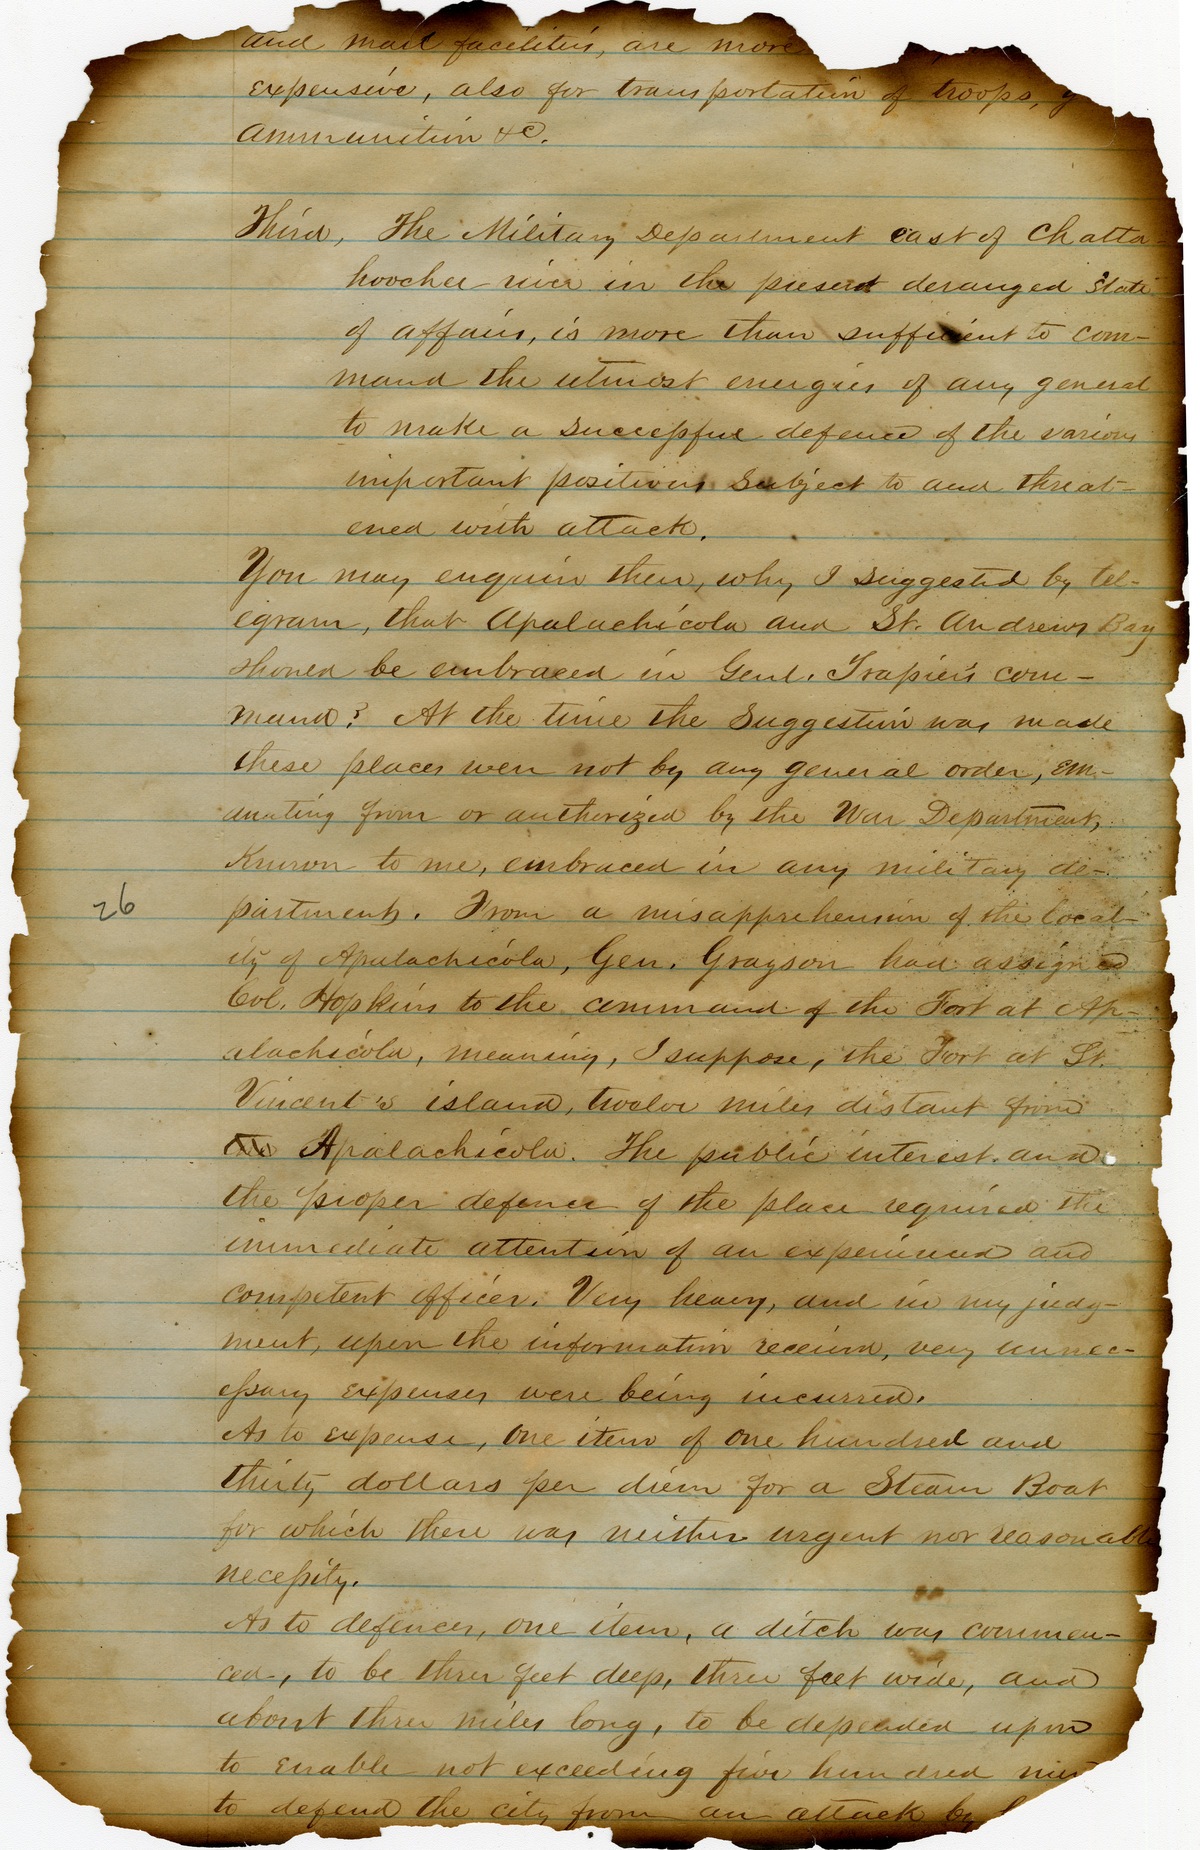 and mail facilities, are more
expensive, also for transportation of troops,
ammunition &c.
Third, The Military Department east of Chatta-
hoochee river in the present deranged State
of affairs, is more than sufficient to com-
mand the utmost energies of any general
to make a successful defence of the various
important positions subject to and threat-
ened with attack.
You may enquire then, why I suggested by tel-
egram, that Apalachicola and St. Andrews Bay
should be embraced in Genl. Trapier's com-
mand? At the time the suggestion was made
these places were not by any general order, em-
anating from or authorized by the War Department,
known to me, embraced in any military de-
partment. From a misapprehension of the local-
ity of Apalachicola, Gen. Grayson had assigned
Col. Hopkins to the command of the Fort at Ap-
alachicola, meaning, I suppose, the Fort at St.
26
Vincent's island, twelve miles distant from
the Apalachicola. The public interest and
the proper defence of the place required the
immediate attention of an experienced and
competent officer. Very heavy, and in my judg-
ment, upon the information received, very unnec-
essary expenses were being incurred.
As to expense, one item of one hundred and
thirty dollars per diem for a Steam Boat
for which there was neither urgent nor reasonable
necessity.
As to defences, one item, a ditch was commen-
ced, to be three feet deep, three feet wide, and
about three miles long, to be depended upon
to enable not exceeding five hundred men
to defend the city from an attack by